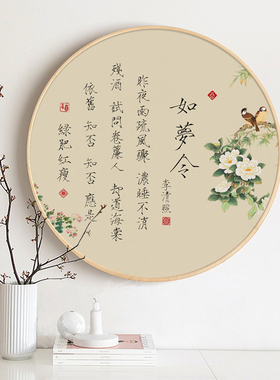 如夢令
李清照
昨夜雨疏風驟 濃睡不消
殘酒 試問卷簾人 却道海棠
依舊 知否 知否 應是
綠肥紅瘦